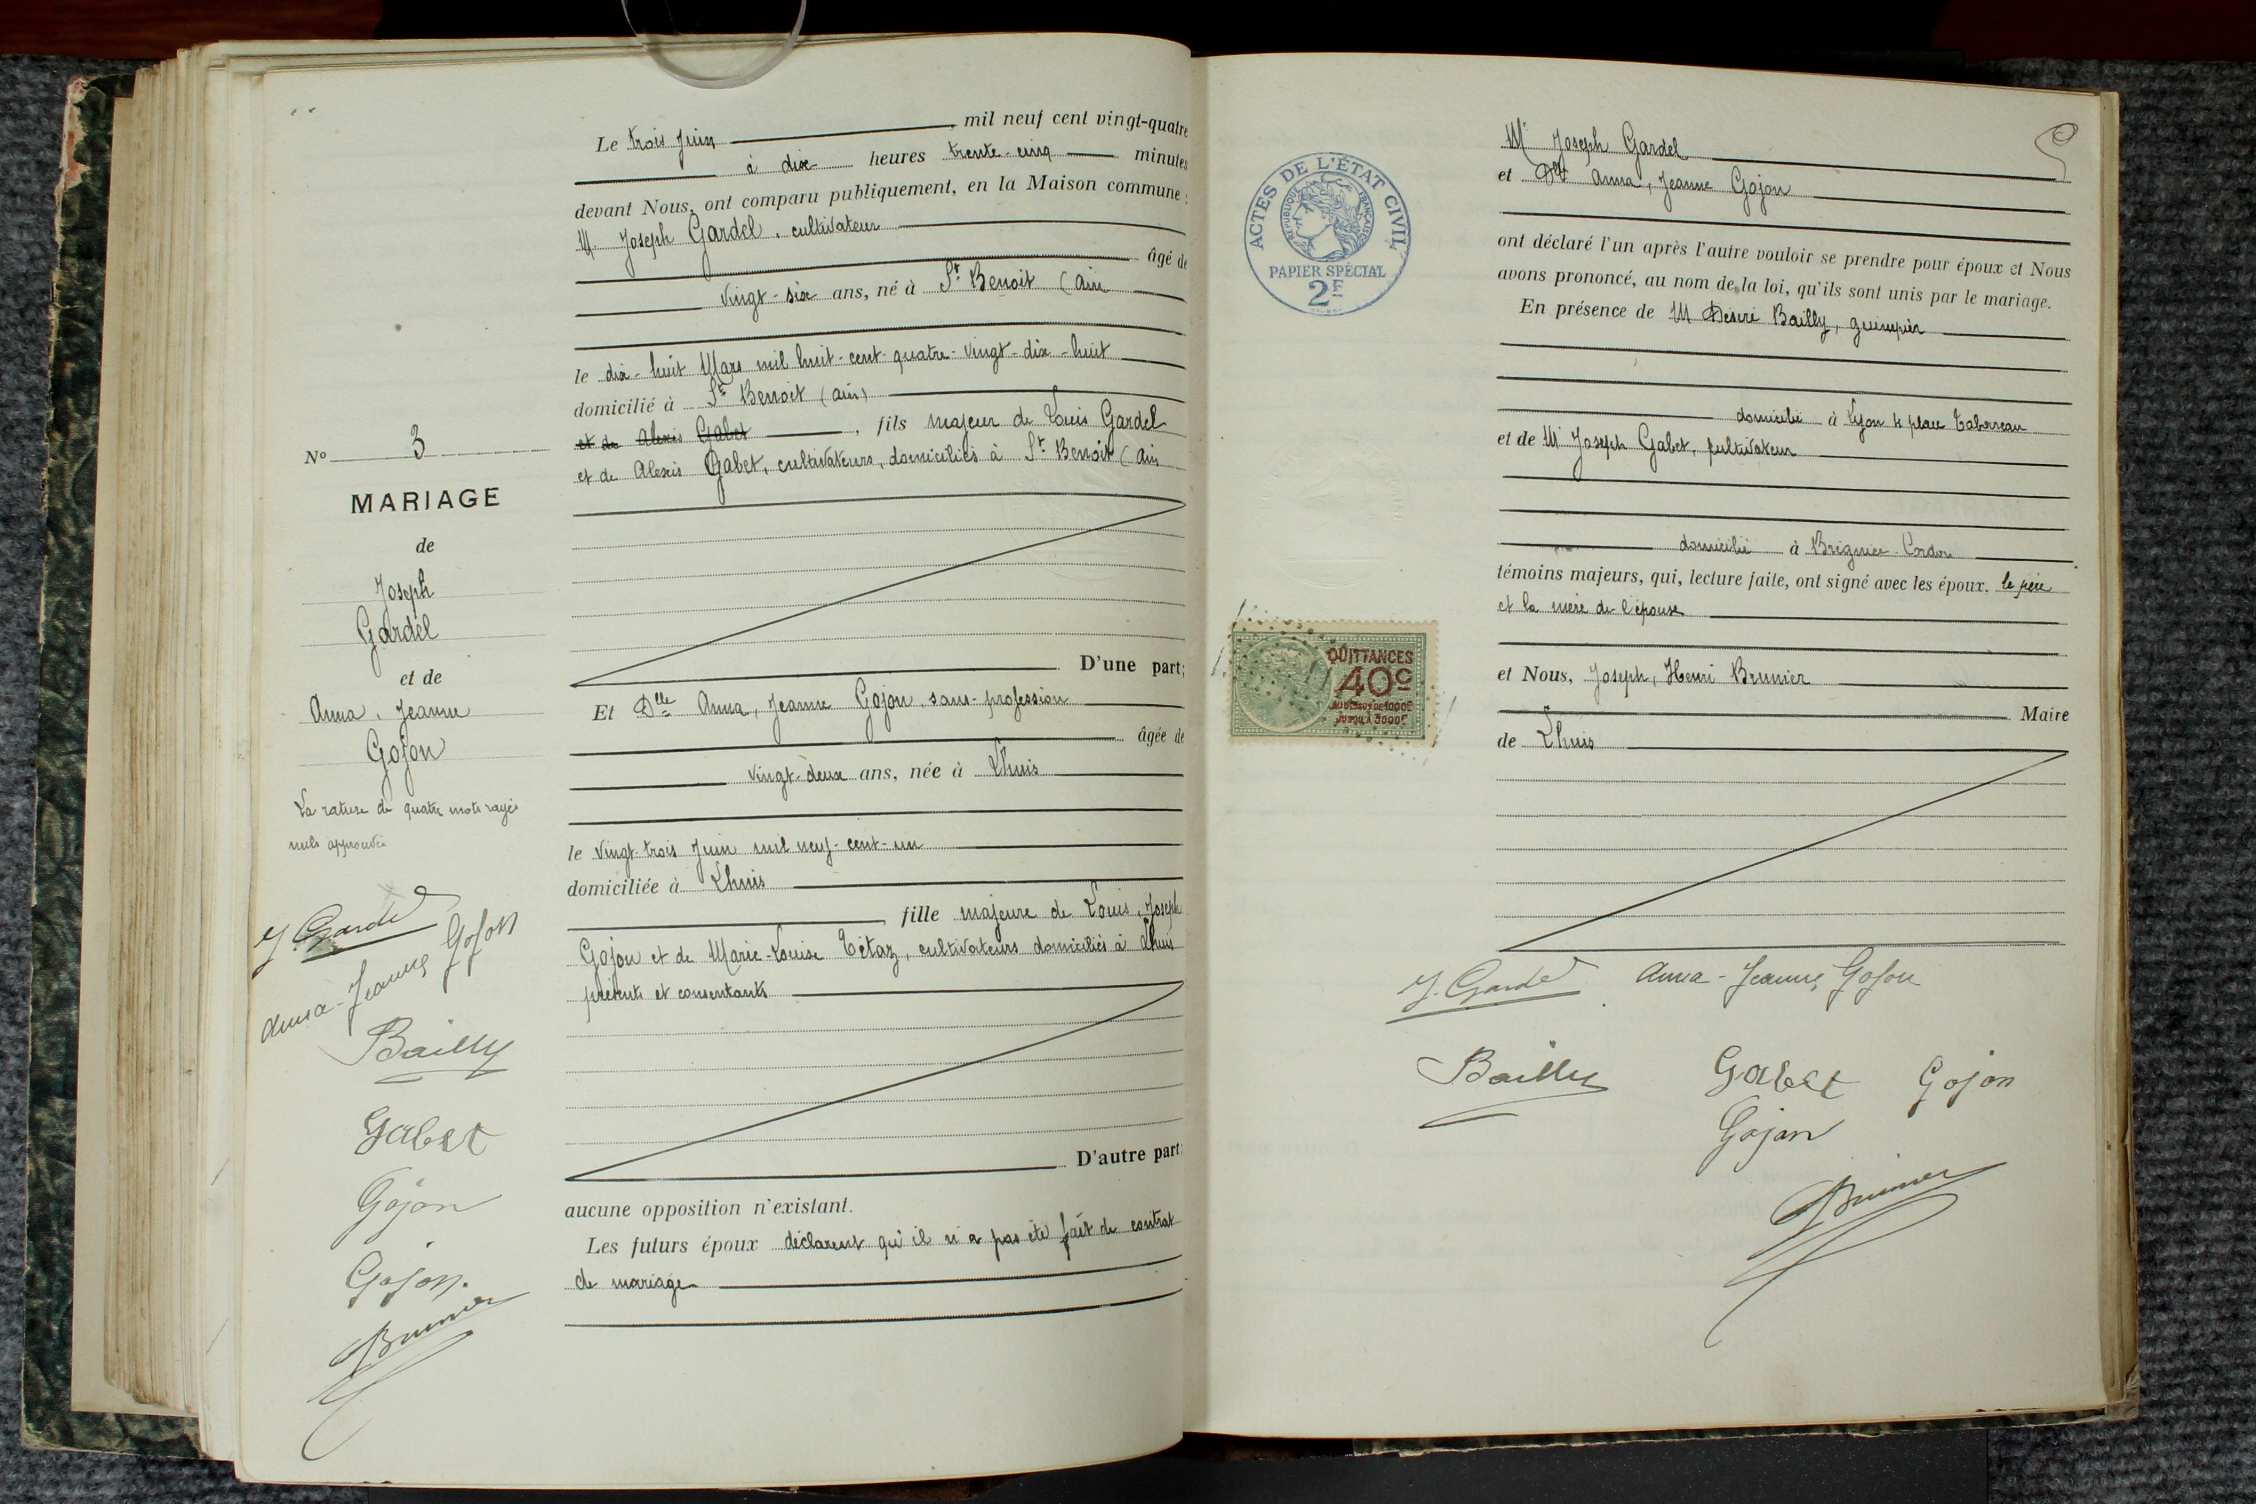 Le trois Juin mil neuf cent vingt-quatre
à dix heures trente-cinq minutes
devant Nous, ont comparu publiquement, en la Maison commune :
M. Joseph Gardel, cultivateur
âgé de
vingt-six ans, né à St Benoit (ain
le dix-huit Mars mil huit-cent-quatre-vingt-dix-huit
domicilié à St Benoit (ain)
et de Alexis Gabet, fils majeur de Louis Gardel
et de Alexis Gabet, cultivateurs, domiciliés à St Benoit (ain
D'une part;
Et Dlle Anna, Jeanne Gojon, sans-profession
âgée de
vingt-deux ans, née à Lhuis
le vingt-trois Juin mil neuf-cent-un
domiciliée à Lhuis
fille majeure de Louis, Joseph
Gojon et de Marie-Louise Tétaz, cultivateurs domiciliés à Lhuis
présents et consentants
D'autre part:
aucune opposition n'existant.
Les futurs époux déclarent qu'il n'a pas été fait de contrat
de mariage
No 3
MARIAGE
de
Joseph
Gardel
et de
Anna, Jeanne
Gojon
La rature de quatre mots rayés
nuls approuvée
J. Gardel
Anna-Jeanne Gojon
Bailly
Gabet
Gojon
Gojon.
Brunier
ACTES DE L'ÉTAT CIVIL
RÉPUBLIQUE FRANÇAISE
PAPIER SPÉCIAL
2F
QUITTANCES
40c
AU DESSUS DE 1000F
JUSQU'À 3000F
Mr Joseph Gardel
et Dlle Anna, Jeanne Gojon
ont déclaré l'un après l'autre vouloir se prendre pour époux et Nous
avons prononcé, au nom de la loi, qu'ils sont unis par le mariage.
En présence de M Désiré Bailly, guimpier
domicilié à Lyon 4 place Tabareau
et de Mr Joseph Gabet, cultivateur
domicilié à Brégnier-Cordon
témoins majeurs, qui, lecture faite, ont signé avec les époux, le père
et la mère de l'épouse
et Nous, Joseph, Henri Brunier
Maire
de Lhuis
J. Gardel Anna-Jeanne Gojon
Bailly Gabet Gojon
Gojon
Brunier